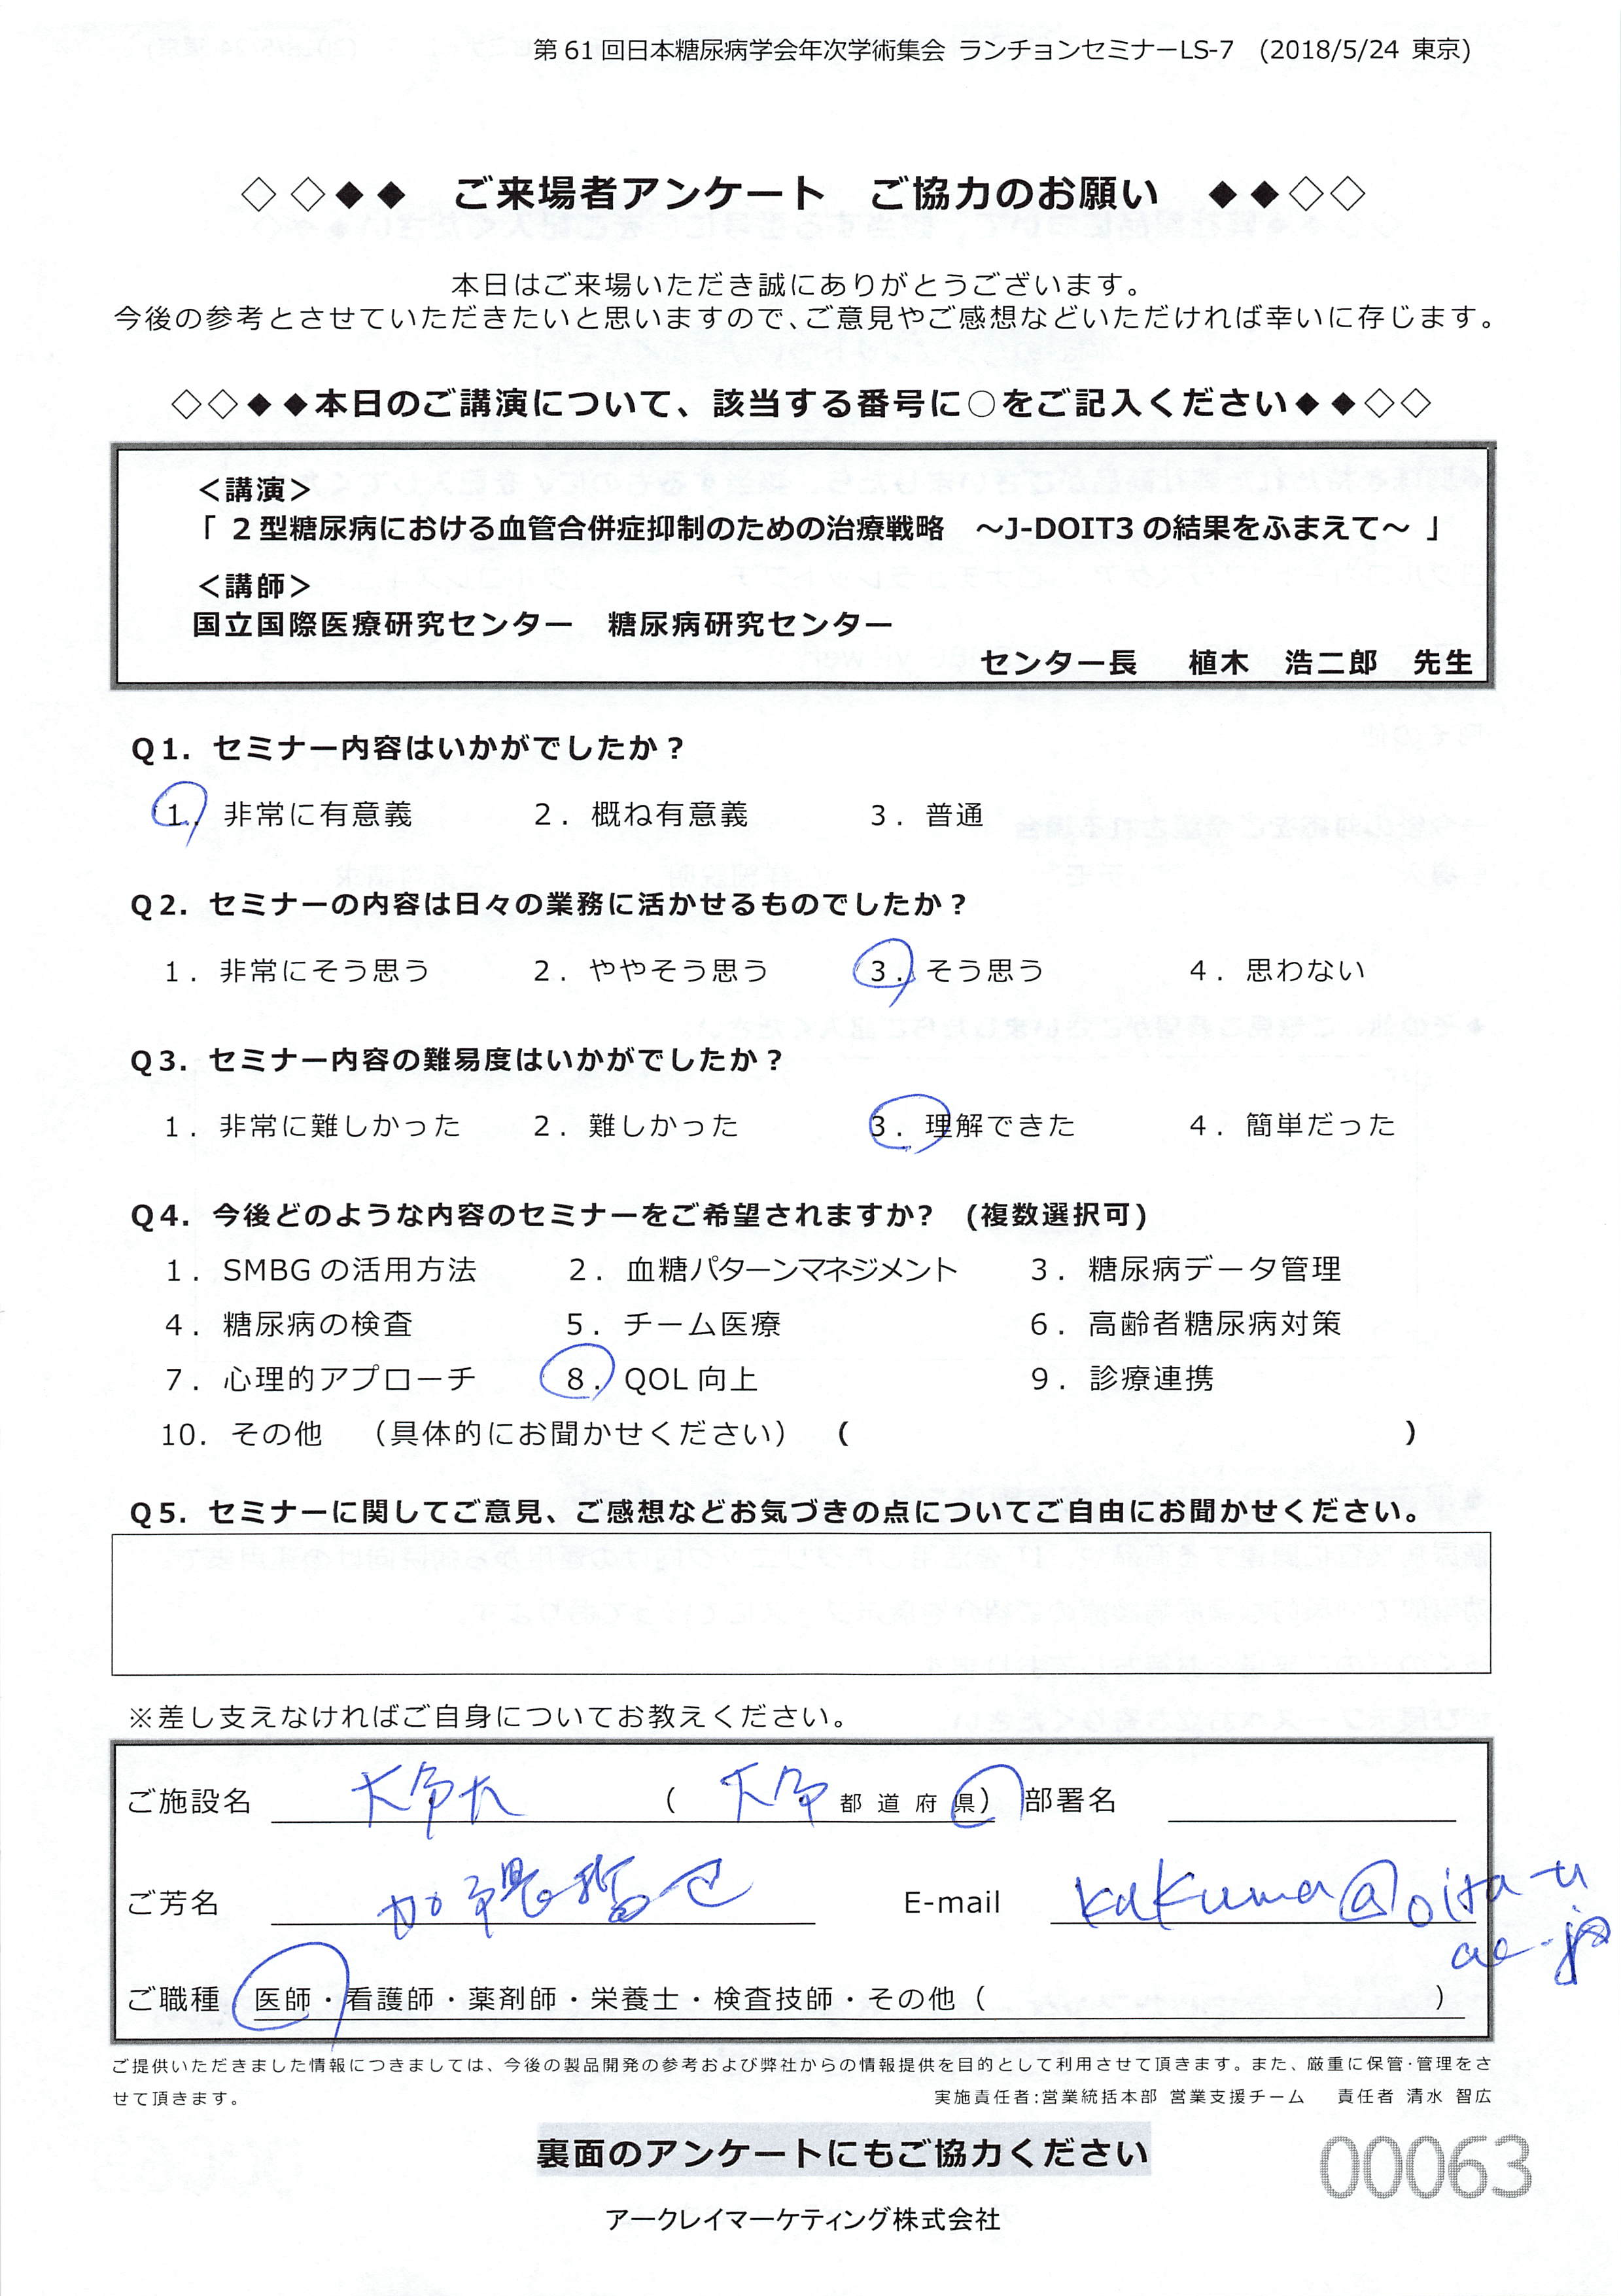 第61回日本糖尿病学会年次学術集会 ランチョンセミナーLS-7 (2018/5/24 東京)
◇◇◆◆ ご来場者アンケート ご協力のお願い ◆◆◇◇
本日はご来場いただき誠にありがとうございます。
今後の参考とさせていただきたいと思いますので、ご意見やご感想などいただければ幸いに存じます。
◇◇◆◆本日のご講演について、該当する番号に○をご記入ください◆◆◇◇
＜講演＞
「 2型糖尿病における血管合併症抑制のための治療戦略 ～J-DOIT3の結果をふまえて～ 」
＜講師＞
国立国際医療研究センター 糖尿病研究センター
センター長 植木 浩二郎 先生
Q1. セミナー内容はいかがでしたか？
1. 非常に有意義 2. 概ね有意義 3. 普通
Q2. セミナーの内容は日々の業務に活かせるものでしたか？
1. 非常にそう思う 2. ややそう思う 3. そう思う 4. 思わない
Q3. セミナー内容の難易度はいかがでしたか？
1. 非常に難しかった 2. 難しかった 3. 理解できた 4. 簡単だった
Q4. 今後どのような内容のセミナーをご希望されますか? (複数選択可)
1. SMBGの活用方法 2. 血糖パターンマネジメント 3. 糖尿病データ管理
4. 糖尿病の検査 5. チーム医療 6. 高齢者糖尿病対策
7. 心理的アプローチ 8. QOL向上 9. 診療連携
10. その他 （具体的にお聞かせください） ( )
Q5. セミナーに関してご意見、ご感想などお気づきの点についてご自由にお聞かせください。
※差し支えなければご自身についてお教えください。
ご施設名 ( 都 道 府 県) 部署名
ご芳名 E-mail kakuma@oita-u
ac.jp
ご職種 医師・看護師・薬剤師・栄養士・検査技師・その他 ( )
ご提供いただきました情報につきましては、今後の製品開発の参考および弊社からの情報提供を目的として利用させて頂きます。また、厳重に保管・管理をさ
せて頂きます。 実施責任者:営業統括本部 営業支援チーム 責任者 清水 智広
裏面のアンケートにもご協力ください
00063
アークレイマーケティング株式会社